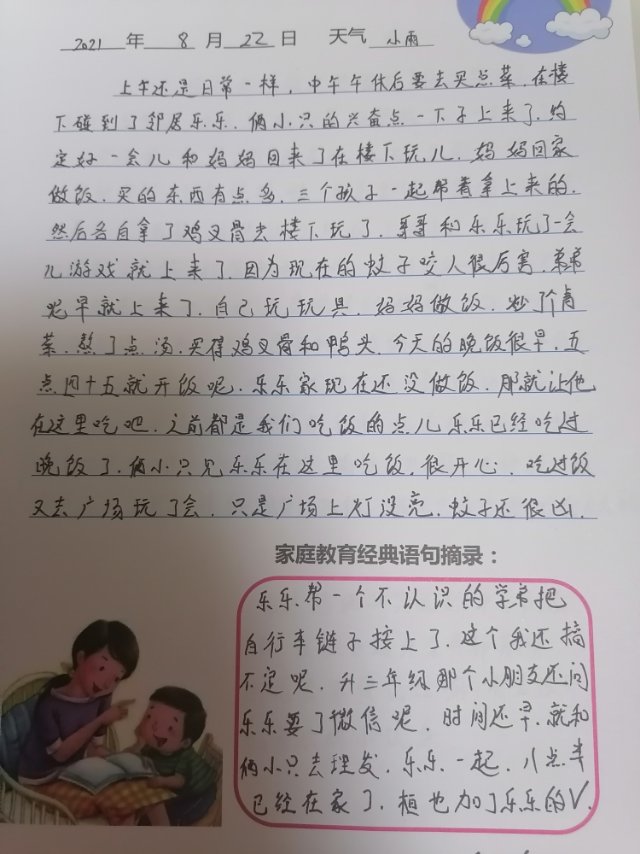 2021 年 8 月 22 日 天气 小雨
上午还是日常一样，中午午休后要去买点菜，在楼
下碰到了邻居乐乐，俩小只的兴奋点一下子上来了，约
定好一会儿和妈妈回来了在楼下玩儿，妈妈回家
做饭，买的东西有点多，三个孩子一起帮着拿上来的，
然后各自拿了鸡叉骨去楼下玩了，哥哥和乐乐玩了一会
儿游戏就上来了，因为现在的蚊子咬人很厉害，弟弟
呢早就上来了，自己玩玩具，妈妈做饭，炒了个青
菜，熬了点汤，买得鸡叉骨和鸭头，今天的晚饭很早，五
点四十五就开饭呢，乐乐家现在还没做饭，那就让他
在这里吃吧，之前都是我们吃饭的点儿乐乐已经吃过
晚饭了，俩小只见乐乐在这里吃饭，很开心，吃过饭
又去广场玩了会，只是广场上灯没亮，蚊子还很凶，
家庭教育经典语句摘录：
乐乐帮一个不认识的学弟把
自行车链子按上了，这个我还搞
不定呢，升三年级那个小朋友还问
乐乐要了微信呢，时间还早，就和
俩小只去理发，乐乐一起，八点半
已经在家了，桓也加了乐乐的V.